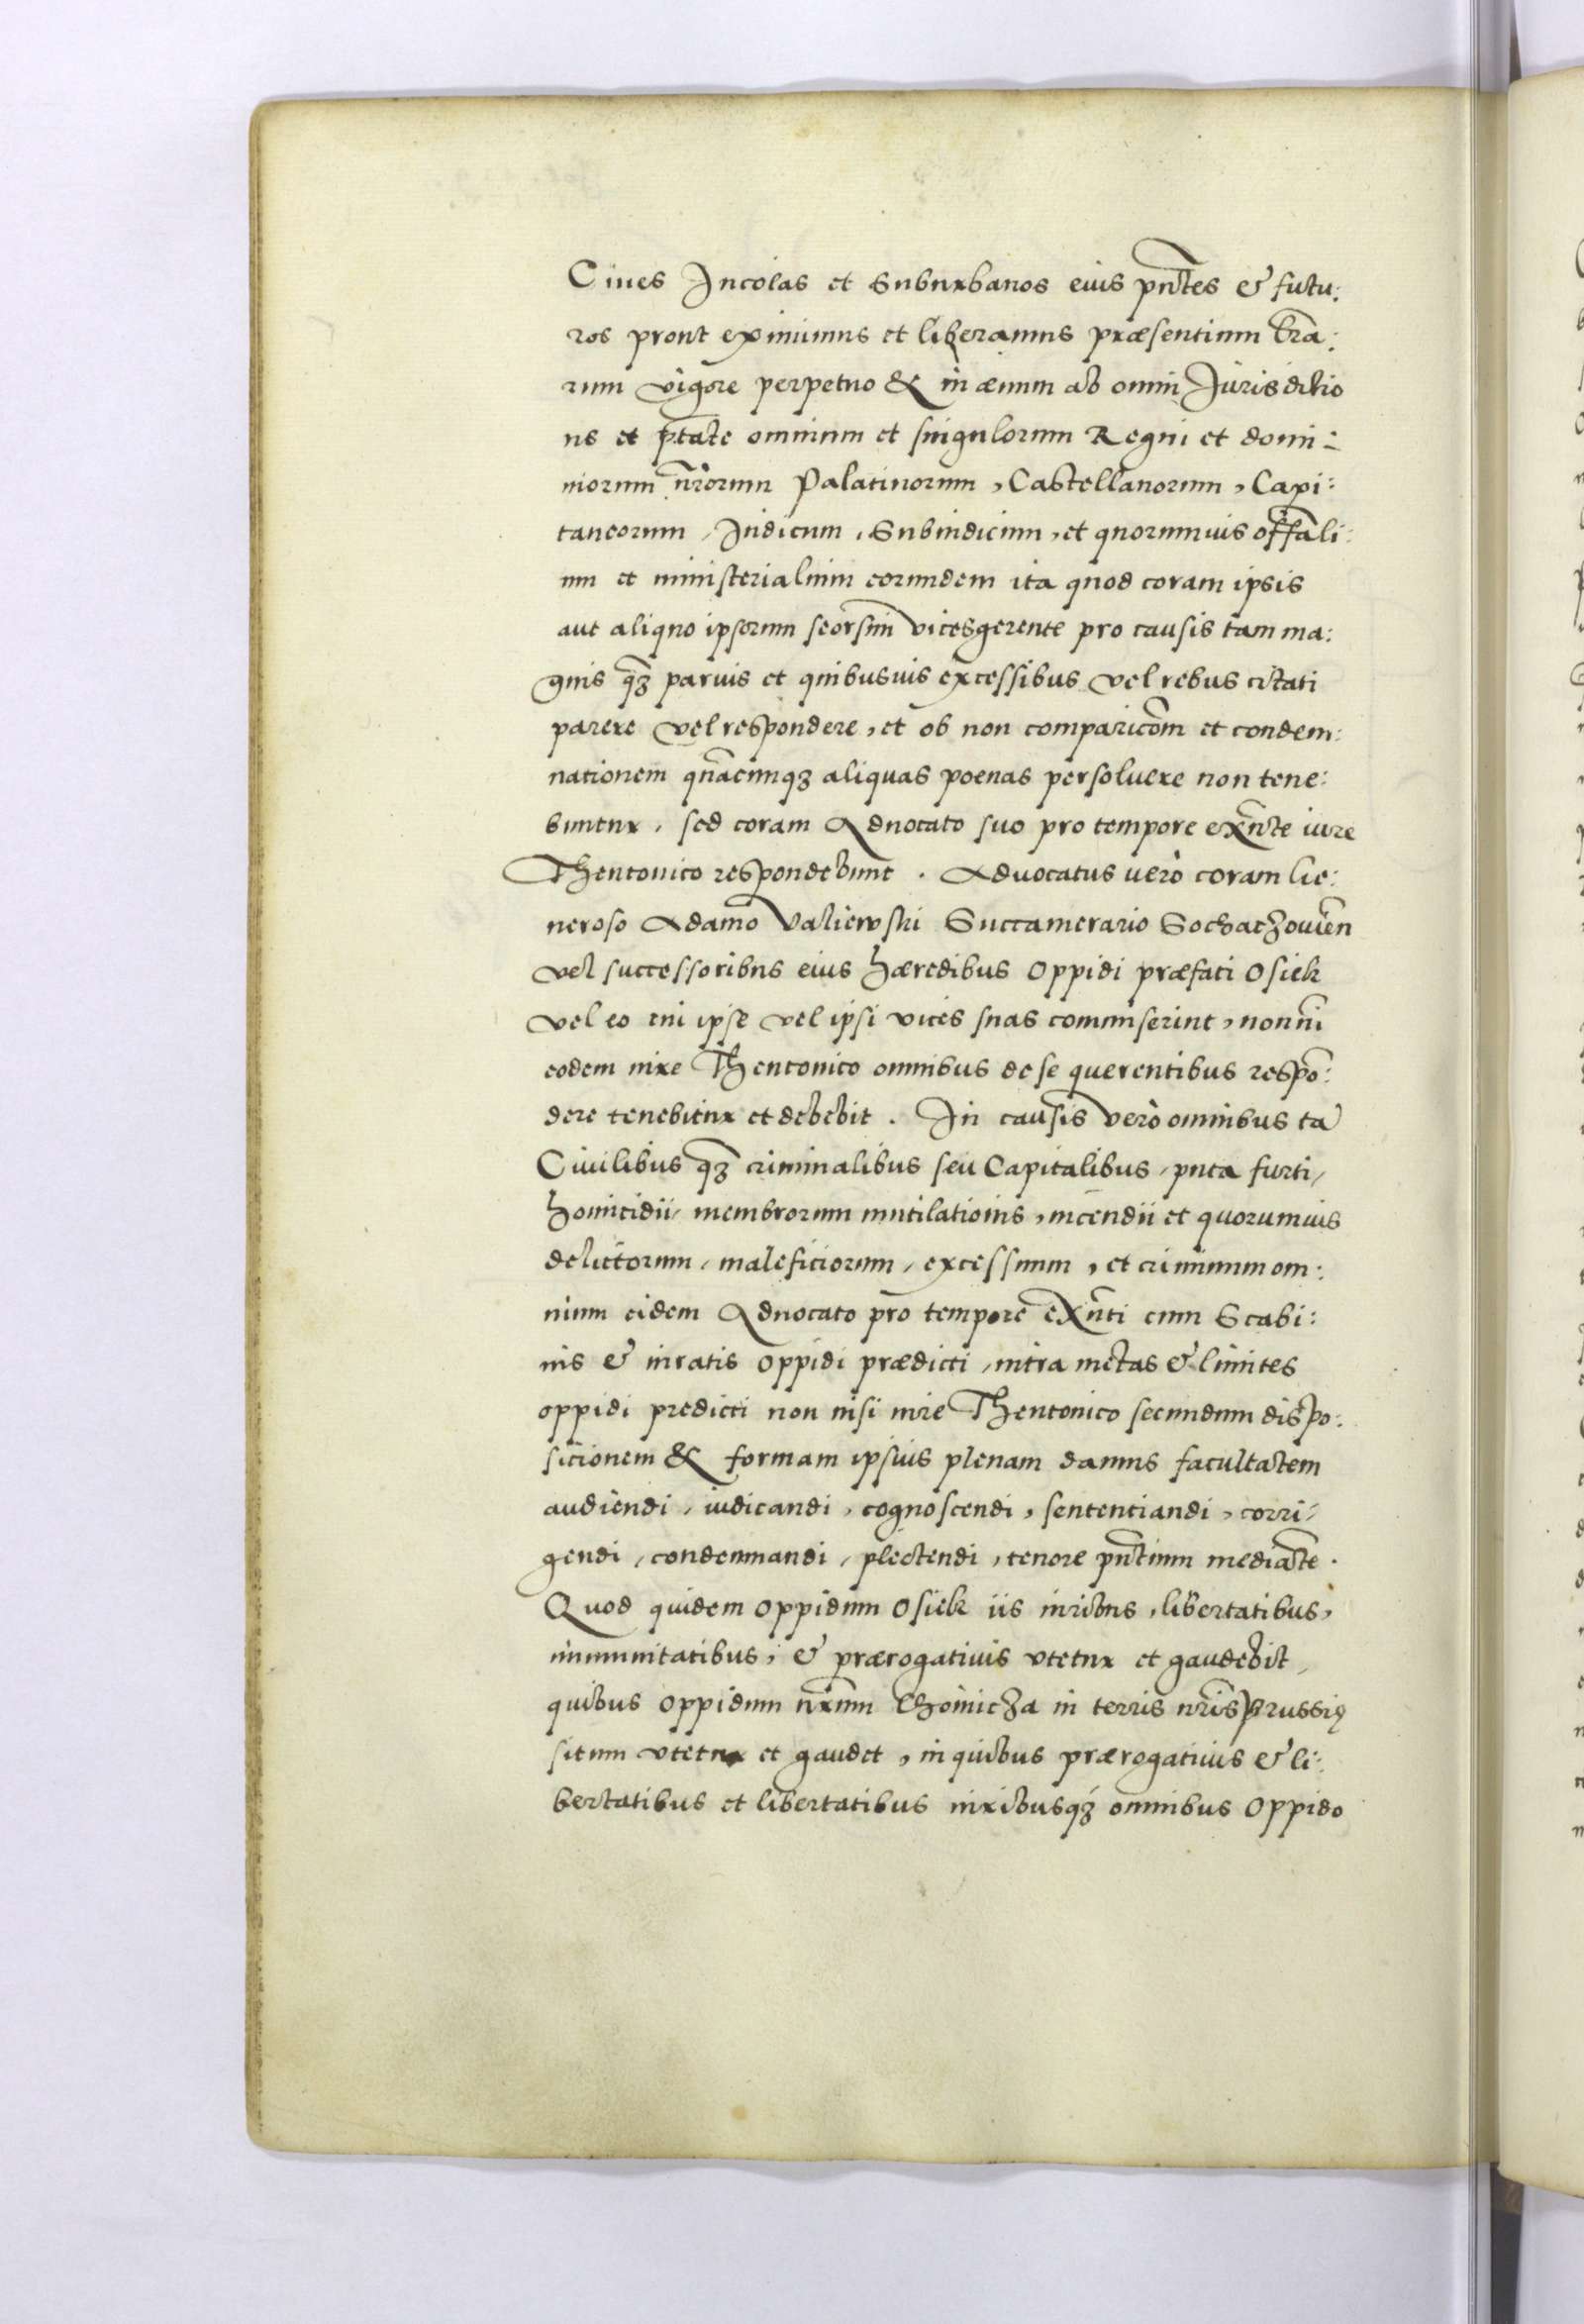 Ciues Incolas et Suburbanos eius pñtes & futu:
ros prout eximimus et liberamus præsentium lr̃a:
rum vigore perpetuo & in æuum ab omni Jurisditio
ne et ptãte omnium et singulorum Regni et domi:
niorum nr̃orum Palatinorum, Castellanorum, Capi:
taneorum, Judicum, Subiudicum, et quorumuis offãli:
um et ministerialium eorumdem ita quod coram ipsis
aut aliquo ipsorum seorsim vicesgerente pro causis tam ma:
gnis qz̃ paruis et quibusuis excessibus vel rebus citati
parere vel respondere, et ob non comparicõm et condem:
nationem qũacunqz aliquas poenas persoluere non tene:
buntur, sed coram Aduocato suo pro tempore exñte iure
Theutonico respondebunt. Aduocatus uerò coram Ge:
neroso Adamo Valiewski Succamerario Sochaczouieñ
vel successoribus eius hæredibus Oppidi præfati Osiek
vel eo cui ipse vel ipsi vices suas commiserint, non ni
eodem iure Theutonico omnibus de se querentibus respõ:
dere tenebitur et debebit. In causis verò omnibus tã
Ciuilibus qz̃ criminalibus seu Capitalibus, puta furti,
homicidii, membrorum mutilationis, incendii et quorumuis
delictorum, maleficiorum, excessuum, et criminum om:
nium eidem Aduocato pro tempore exñti cum Scabi:
nis & iuratis Oppidi prædicti, intra metas & limites
oppidi predicti non nisi iure Theutonico secundum dispo:
sicionem & formam ipsius plenam damus facultatem
audiendi, iudicandi, cognoscendi, sentenciandi, corri-
gendi, condemnandi, plectendi, tenore pñtium mediãte.
Quod quidem Oppidum Osiek iis iuribus, libertatibus,
immunitatibus, & prærogatiuis vtetur et gaudebit,
quibus Oppidum nr̃um Choinicza in terris nr̃is Prussię
situm vtetur et gaudet, in quibus prærogatiuis & li:
bertatibus et libertatibus iuribusqz omnibus Oppido